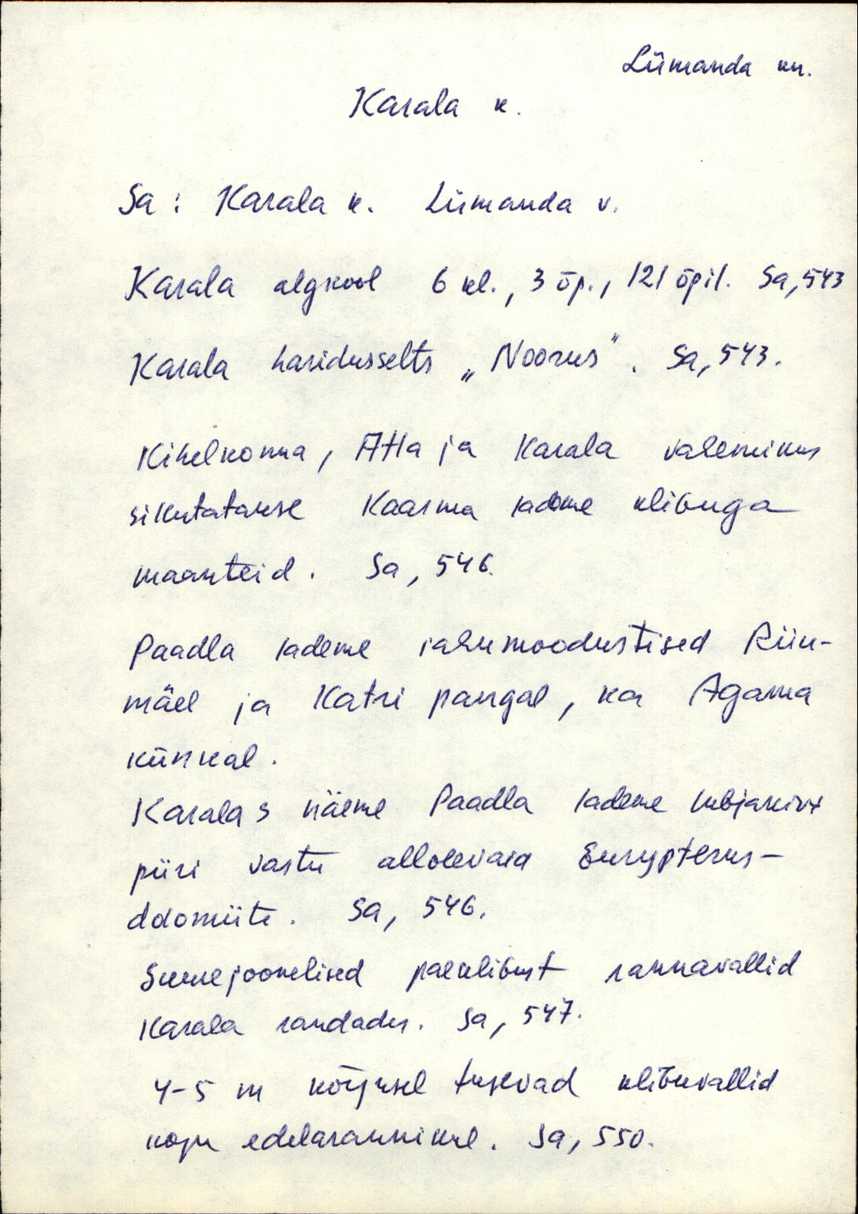 Lümanda kn.
Karala k.
Sa: Karala k. Lümanda v.
Karala algkool 6 kl., 3 õp., 121 õpil. Sa, 543
Karala haridusselts „Noorus”. Sa, 543.
Kihelkonna, Atla ja Karala vahemikus
sillutatakse Kaarma lademe klibuga
maanteid. Sa, 546.
Paadla lademe rahumoodustised Riiu-
mäel ja Katri pangal, ka Agama
künkal.
Karalas näeme Paadla lademe lubjakivi
piiri vastu allolevaid Eurypterus-
dolomiite. Sa, 546.
Suurejoonelised paeklibust rannavallid
Karala randades. Sa, 547.
4-5 m kõrgusel tusevad klibuvallid
kogu edelarannikul. Sa, 550.